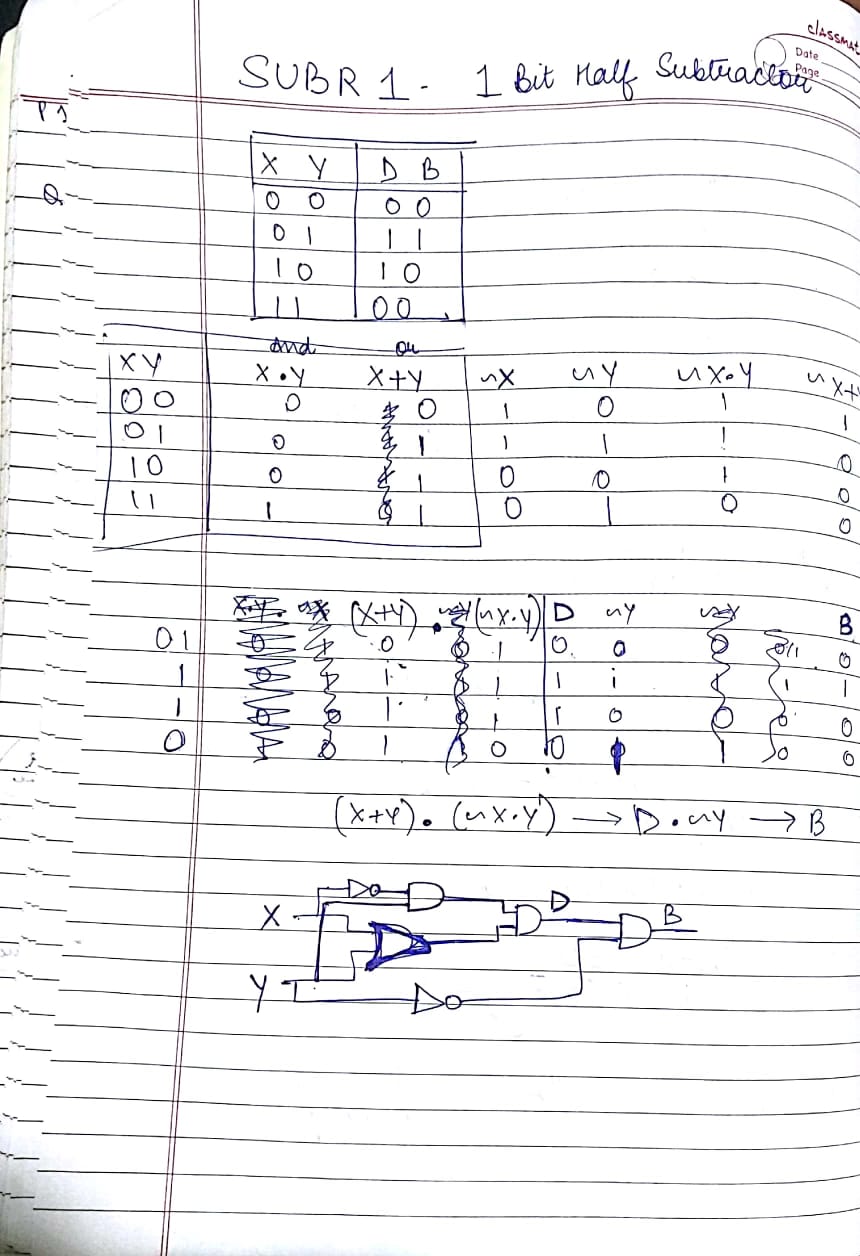 classmate
Date
Page
SUBR 1 - 1 Bit Half Subtractor
P1
Q
X Y D B
0 0 0 0
0 1 1 1
1 0 1 0
1 1 0 0
And or
X Y X•Y X+Y ~X ~Y ~X•Y ~X+
0 0 0 0 1 0 1 1
0 1 0 1 1 1 1 0
1 0 0 1 0 0 1 0
1 1 1 1 0 1 0 0
(X+Y) • (~X•Y) D ~Y B
0 1 0 1 0 0 0
1 1 1 1 1 1
1 1 1 1 0 0
0 1 0 0 0
(X+Y) • (~X•Y) → D • ~Y → B
D
X B
Y